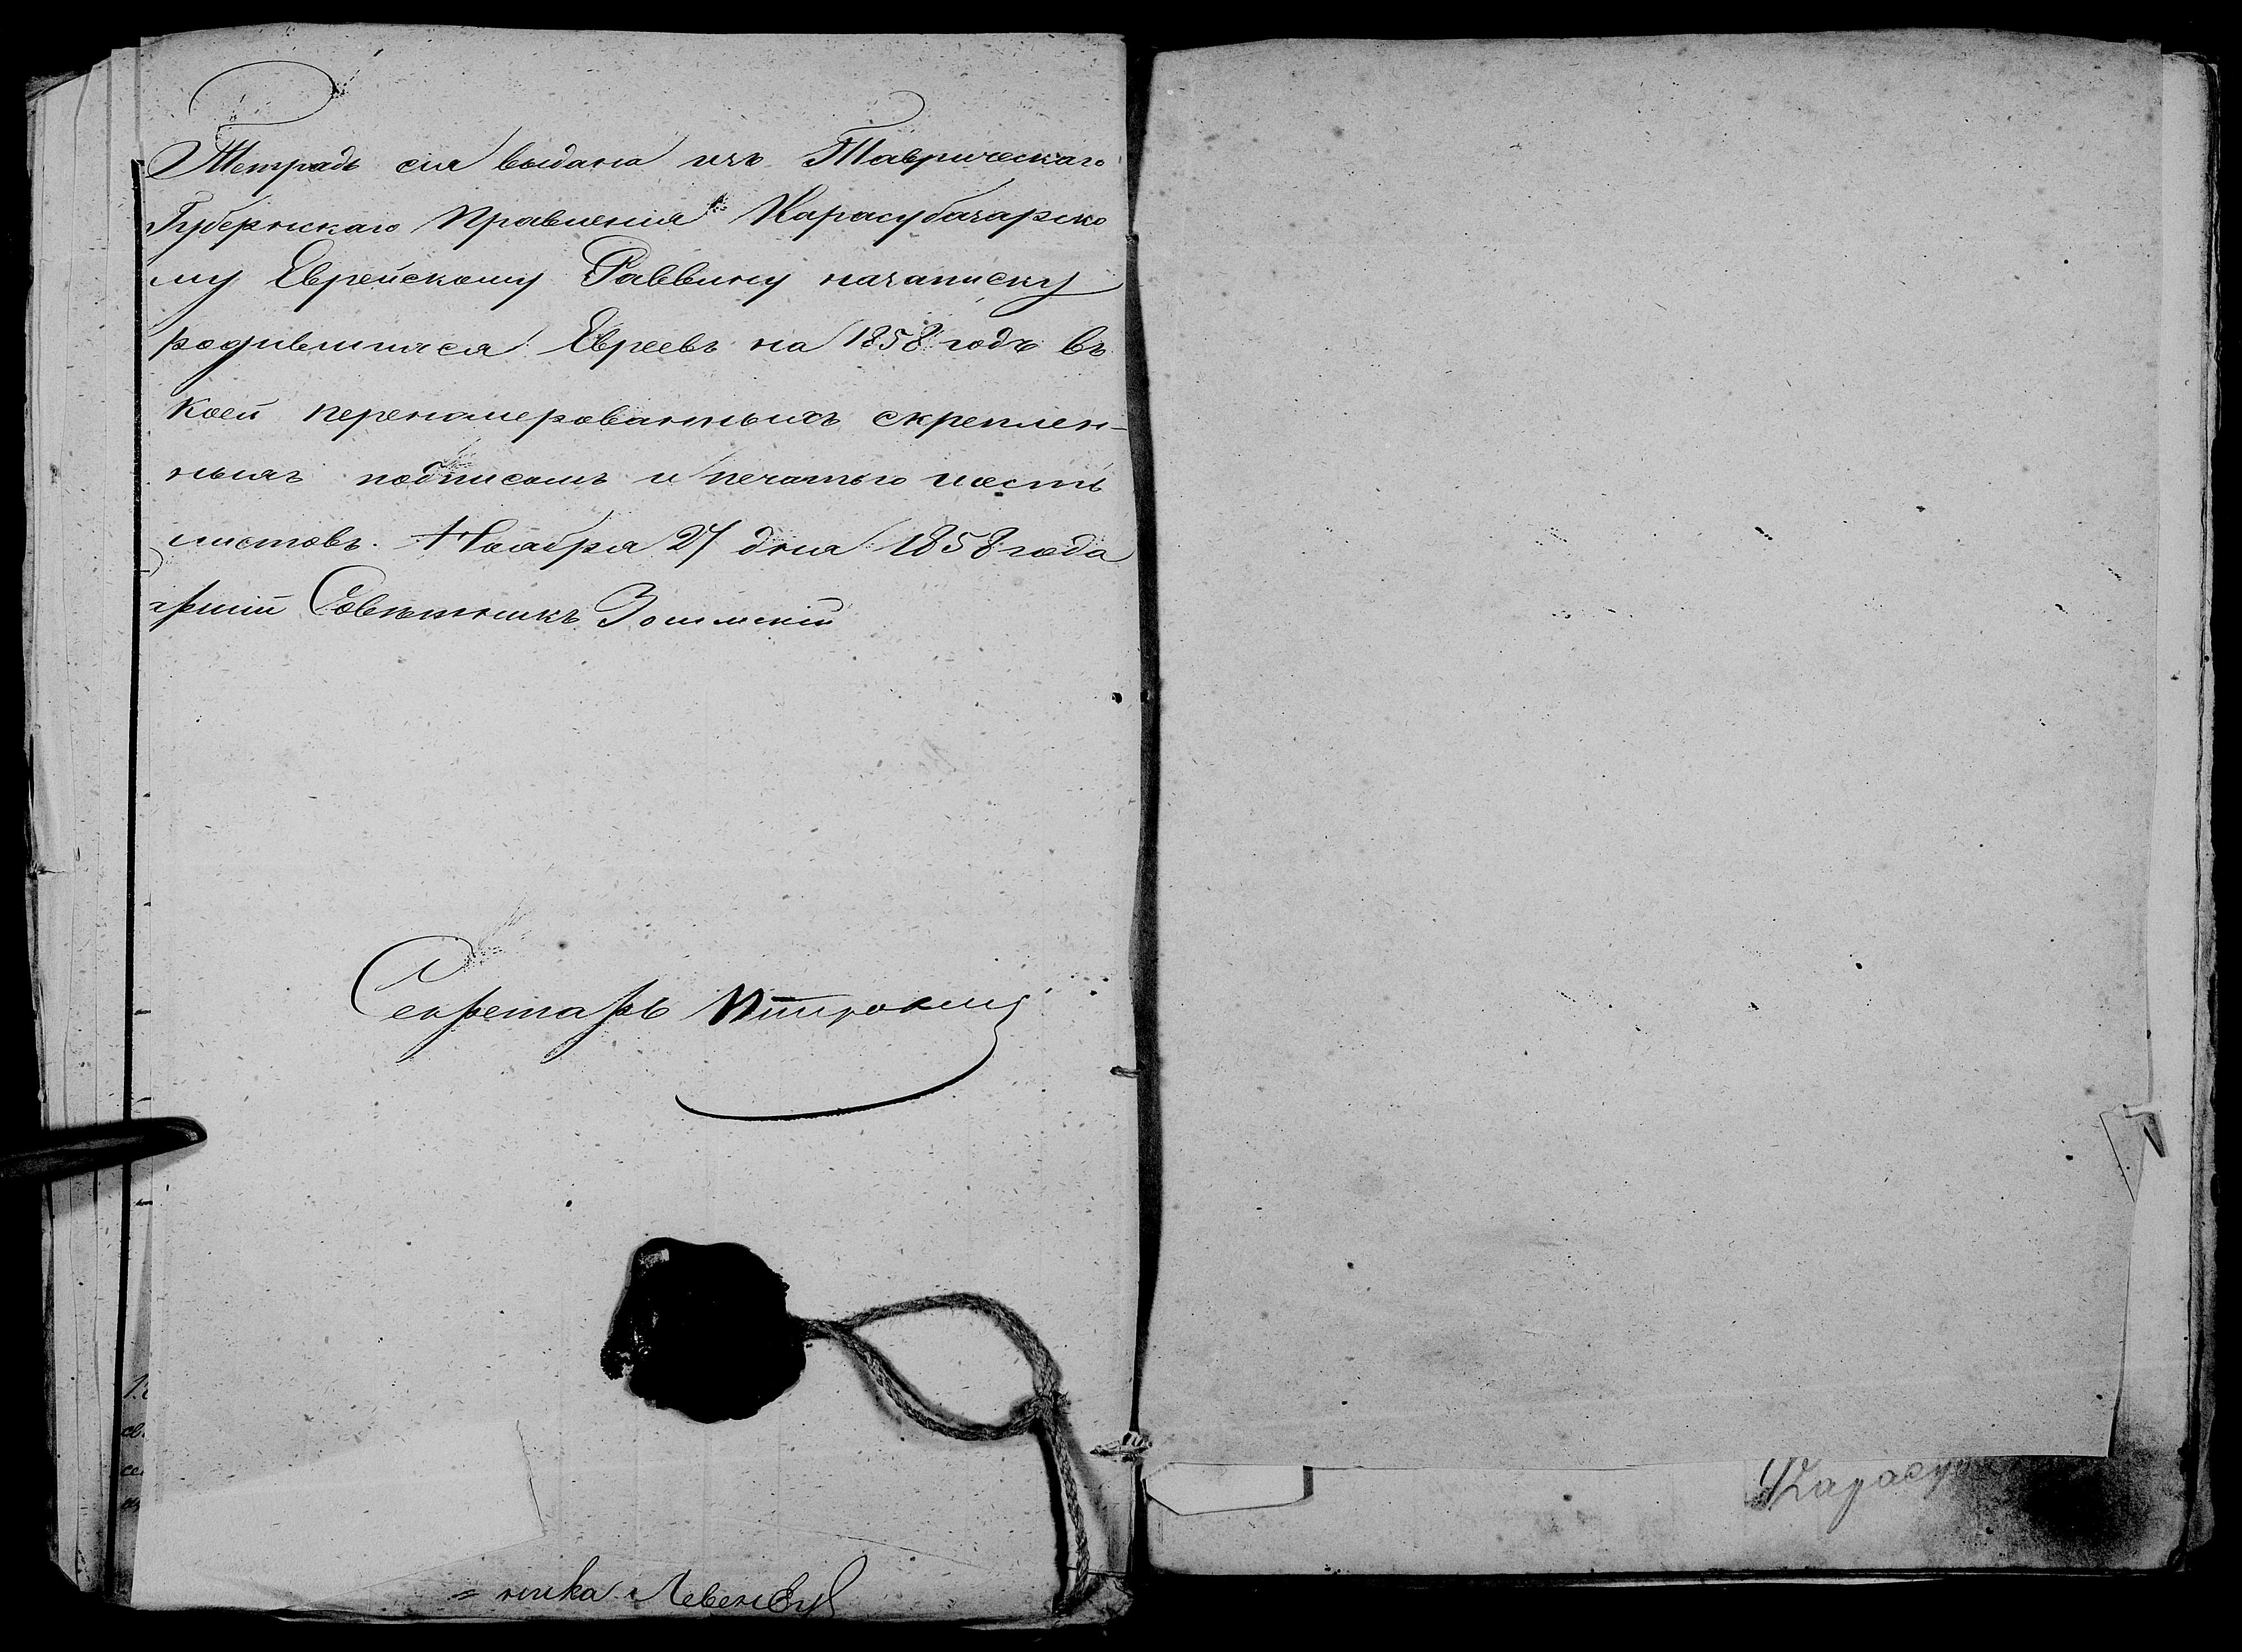 Тетрадь сія выдана изъ Таврическаго
Губернскаго Правленія Карасубазарско
му Еврейскому Раввину назаписку
родившихся Евреевъ на 1858 годъ въ
коей перенумерованныхъ скреплен-
ныхъ подписомъ и печатью шесть
листовъ. Ноября 27 дня 1858 года
Совѣтникъ
Секретарь
= ника
Карасу